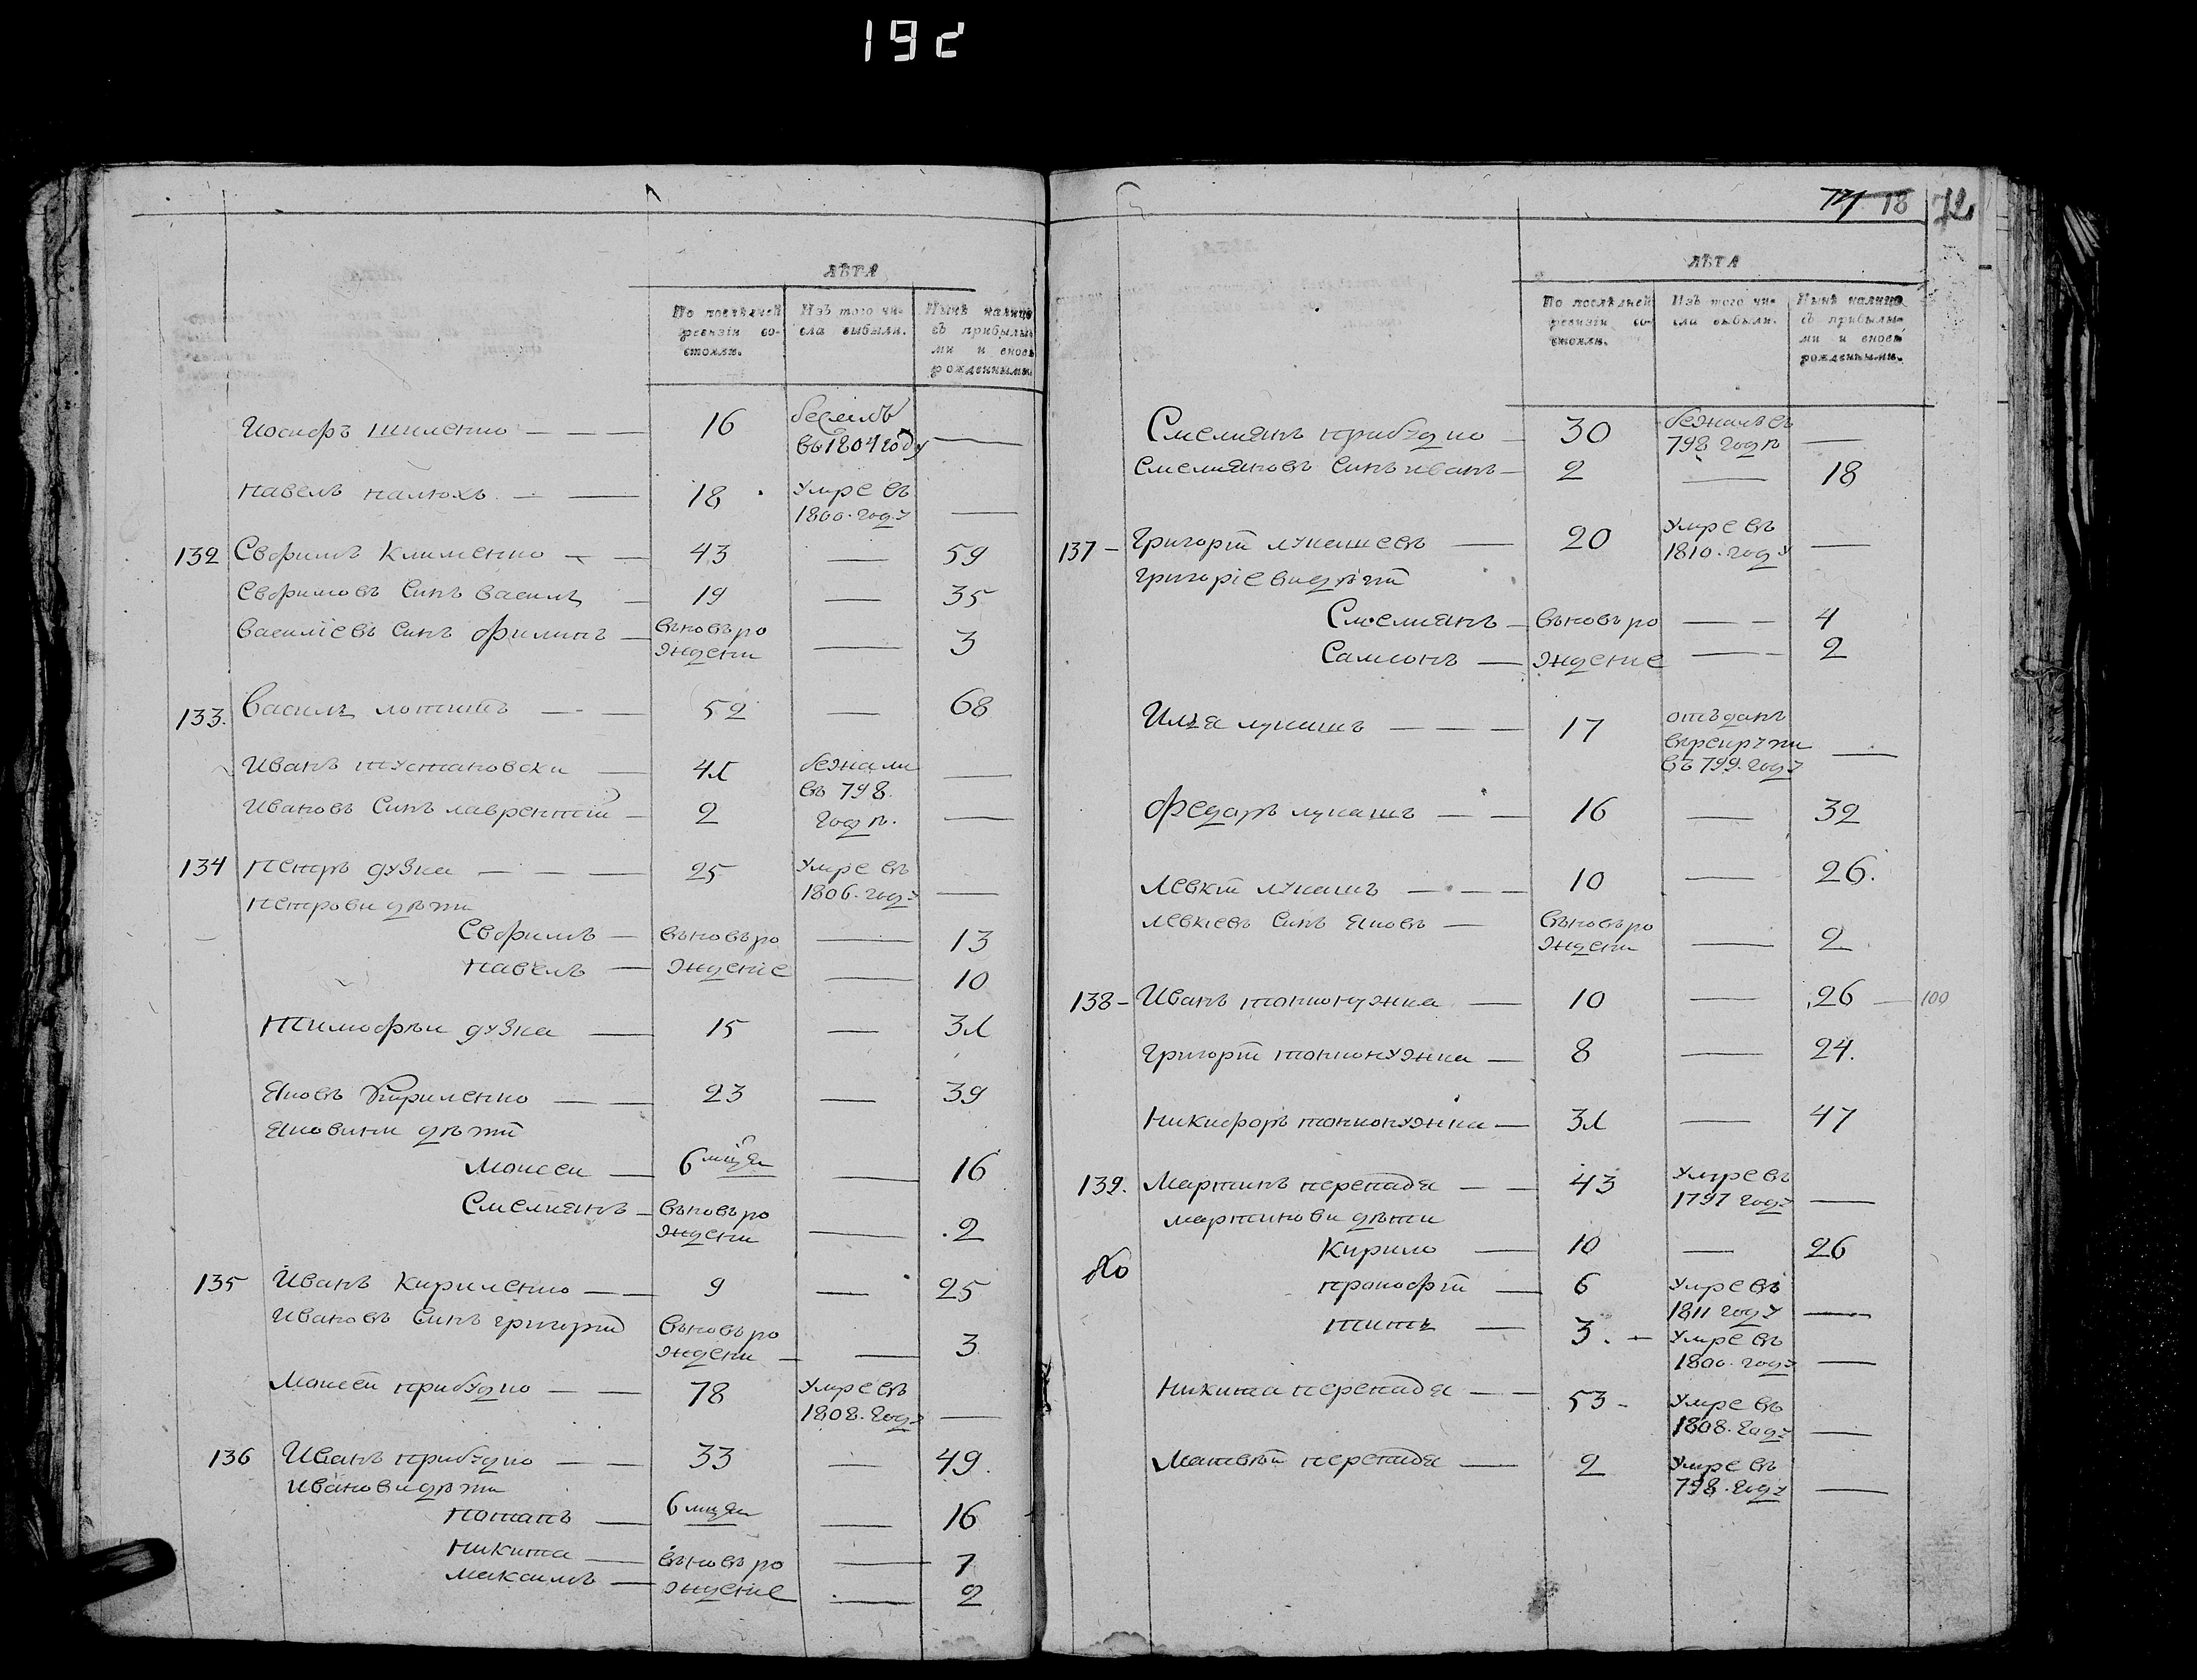 192
ЛѢТА
По послѣдней ревизіи состояли.
Изъ того числа выбыли.
Нынѣ налицо съ прибылыми и вновь рожденными.
Иосифъ 16 во 1804 году —
Павелъ 18 умре въ 1800 году —
132 Евфимъ Клименко — 43 — 59
Евфимовъ синъ Василь — 19 — 35
Василіевъ синъ Филипъ — вьновь рождени — 3
133. Василь — 52 — 68
Иванъ — 41 бежали въ 798 годѣ. —
Ивановъ Синъ Лаврентій — 2 —
134 Петръ дузка — 25 умре въ 1806 году —
Петрови дѣти
Евфимъ — вьновь рождение — 13
Павелъ — — 10
Тимофѣи дузка — 15 — 31
Яковъ Кириленко — 23 — 39
Яковини дѣти
Моисеи — 6 мцѧ — 16
Емелиянъ — вьновь рождени — 2
135 Иванъ Кириленко — 9 — 25
Ивановъ Синъ Григорій вьновь рождени — 3
Моисеи прибудко — 78 умре въ 1808 году —
136 Иванъ прибудко — 33 — 49.
Иванови дѣти
Потапъ — 6 мцѧ — 16
Никита — вьновь рождение — 7
Максимъ — — 2
18 72
ЛѢТА
По послѣдней ревизіи состояли.
Изъ того числа выбыли.
Нынѣ налицо съ прибылыми и вновь рожденными.
Емелиянъ прибудко — 30 бежалъ въ 798 годѣ —
Емелияновъ Синъ Иванъ — 2 — 18
137 — Григорій лукашевъ — 20 умре въ 1810 году —
Григоріеви дѣти
Емелиянъ — вьновь рождение — 4
Самсонъ — — 2
Илья лукашъ — 17 отъданъ въ рекрути въ 799 году —
Федоръ лукашъ — 16 — 32
Левкій лукашъ — 10 — 26.
Левкіевъ Синъ Яковъ — вьновь рождени — 2
138 — Иванъ — 10 — 26 — 100
Григорій — 8 — 24.
Никифоръ — 31 — 47
139. Мартинъ перепада — 43 умре въ 1797 году —
Мартинови дѣти
Кирило — 10 — 26
Прокофій — 6 умре въ 1811 году —
Титъ — 3. — умре въ 1800 году —
Никита перепада — 53 — умре въ 1808 году —
Матвѣй перепада — 2 умре въ 798 году —